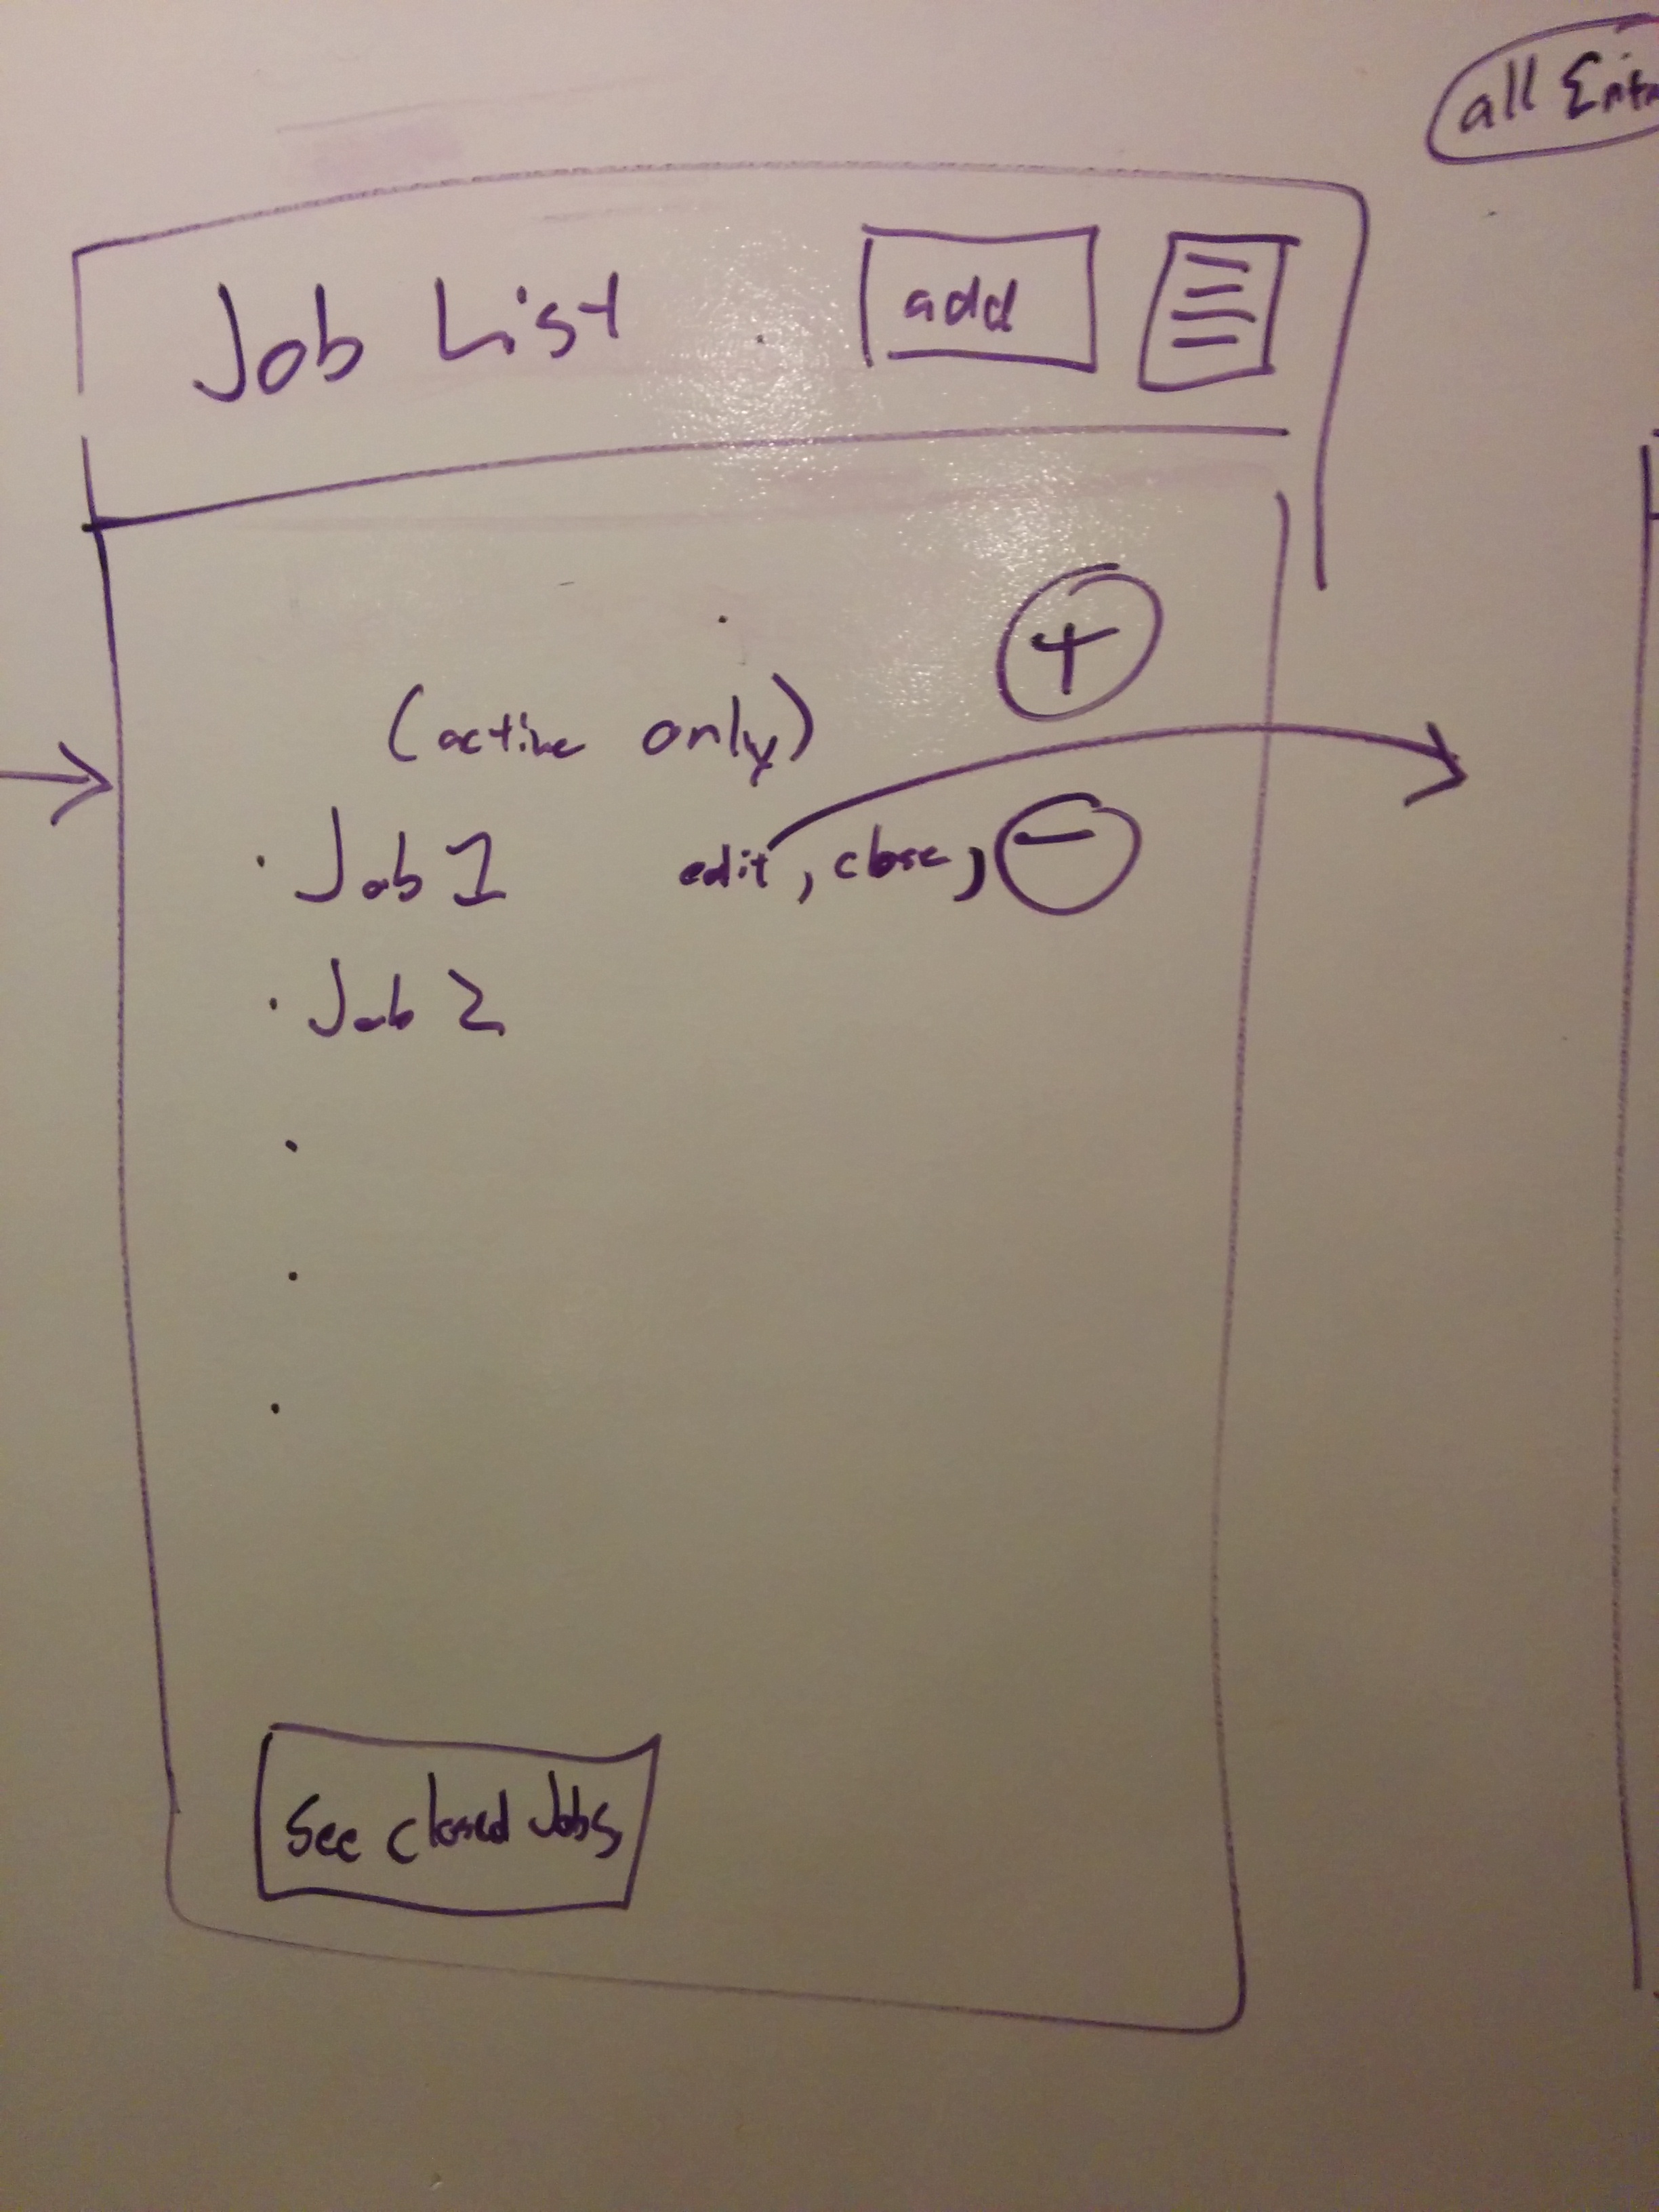 all
Job List
add
+
(active only)
· Job 1 edit, close, −
· Job 2
·
·
·
See closed Jobs